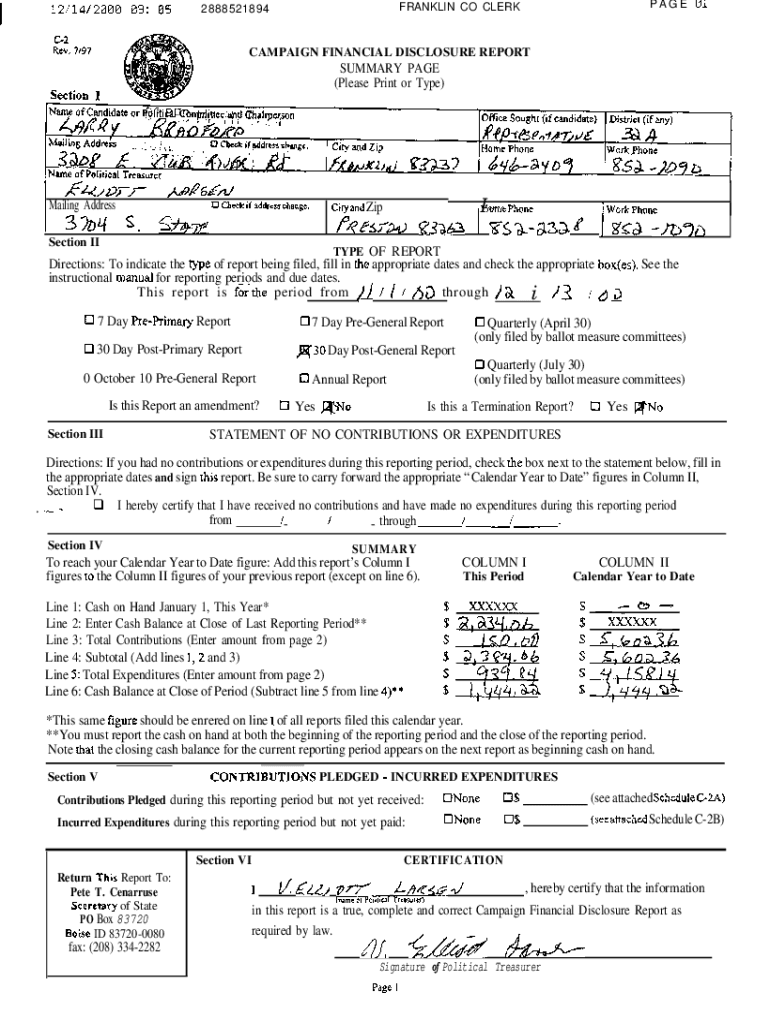 12/14/2000 09:05 2088521094 FRANKLIN CO CLERK PAGE 01
C-2
Rev. 7/97
CAMPAIGN FINANCIAL DISCLOSURE REPORT
SUMMARY PAGE
(Please Print or Type)
Section I
Name of Candidate or Political Committee and Chairperson Office Sought (if candidate) District (if any)
LARRY BRADFORD REPRESENTATIVE 32 A
Mailing Address ☐ Check if address change. City and Zip Home Phone Work Phone
3208 E CUB RIVER Rd FRANKLIN 83237 646-2409 852-1090
Name of Political Treasurer
ELLIOTT LARSEN
Mailing Address ☐ Check if address change. City and Zip Home Phone Work Phone
3704 S. STATE PRESTON 83263 852-2328 852-1090
Section II
TYPE OF REPORT
Directions: To indicate the type of report being filed, fill in the appropriate dates and check the appropriate box(es). See the
instructional manual for reporting periods and due dates.
This report is for the period from 11/1/00 through 12/13/00
☐ 7 Day Pre-Primary Report ☐ 7 Day Pre-General Report ☐ Quarterly (April 30)
(only filed by ballot measure committees)
☐ 30 Day Post-Primary Report ☒ 30 Day Post-General Report
☐ Quarterly (July 30)
0 October 10 Pre-General Report ☐ Annual Report (only filed by ballot measure committees)
Is this Report an amendment? ☐ Yes ☒ No Is this a Termination Report? ☐ Yes ☒ No
Section III STATEMENT OF NO CONTRIBUTIONS OR EXPENDITURES
Directions: If you had no contributions or expenditures during this reporting period, check the box next to the statement below, fill in
the appropriate dates and sign this report. Be sure to carry forward the appropriate “Calendar Year to Date” figures in Column II,
Section IV.
☐ I hereby certify that I have received no contributions and have made no expenditures during this reporting period
from ____/____/____ through ____/____/____.
Section IV SUMMARY
To reach your Calendar Year to Date figure: Add this report's Column I COLUMN I COLUMN II
figures to the Column II figures of your previous report (except on line 6). This Period Calendar Year to Date
Line 1: Cash on Hand January 1, This Year* $ XXXXXX $ -0-
Line 2: Enter Cash Balance at Close of Last Reporting Period** $ 2,234.06 $ XXXXXX
Line 3: Total Contributions (Enter amount from page 2) $ 150.00 $ 5,602.36
Line 4: Subtotal (Add lines 1, 2 and 3) $ 2,384.06 $ 5,602.36
Line 5: Total Expenditures (Enter amount from page 2) $ 939.84 $ 4,158.14
Line 6: Cash Balance at Close of Period (Subtract line 5 from line 4)** $ 1,444.22 $ 1,444.22
*This same figure should be enrered on line 1 of all reports filed this calendar year.
**You must report the cash on hand at both the beginning of the reporting period and the close of the reporting period.
Note that the closing cash balance for the current reporting period appears on the next report as beginning cash on hand.
Section V CONTRIBUTIONS PLEDGED - INCURRED EXPENDITURES
Contributions Pledged during this reporting period but not yet received: ☐None ☐$ ________ (see attached Schedule C-2A)
Incurred Expenditures during this reporting period but not yet paid: ☐None ☐$ ________ (see attached Schedule C-2B)
Section VI CERTIFICATION
Return This Report To:
Pete T. Cenarruse
Secretary of State
PO Box 83720
Boise ID 83720-0080
fax: (208) 334-2282
I V. ELLIOTT LARSEN, hereby certify that the information
(name of Political Treasurer)
in this report is a true, complete and correct Campaign Financial Disclosure Report as
required by law.
V. Elliott Larsen
Signature of Political Treasurer
Page 1